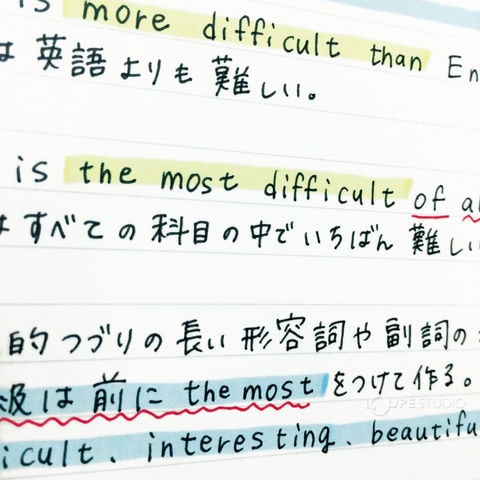 is more difficult than En
は英語よりも難しい。
is the most difficult of al
はすべての科目の中でいちばん難しい
的つづりの長い形容詞や副詞の
級は前に the most をつけて作る。
icult、interesting、beautifu
LOUPE STUDIO